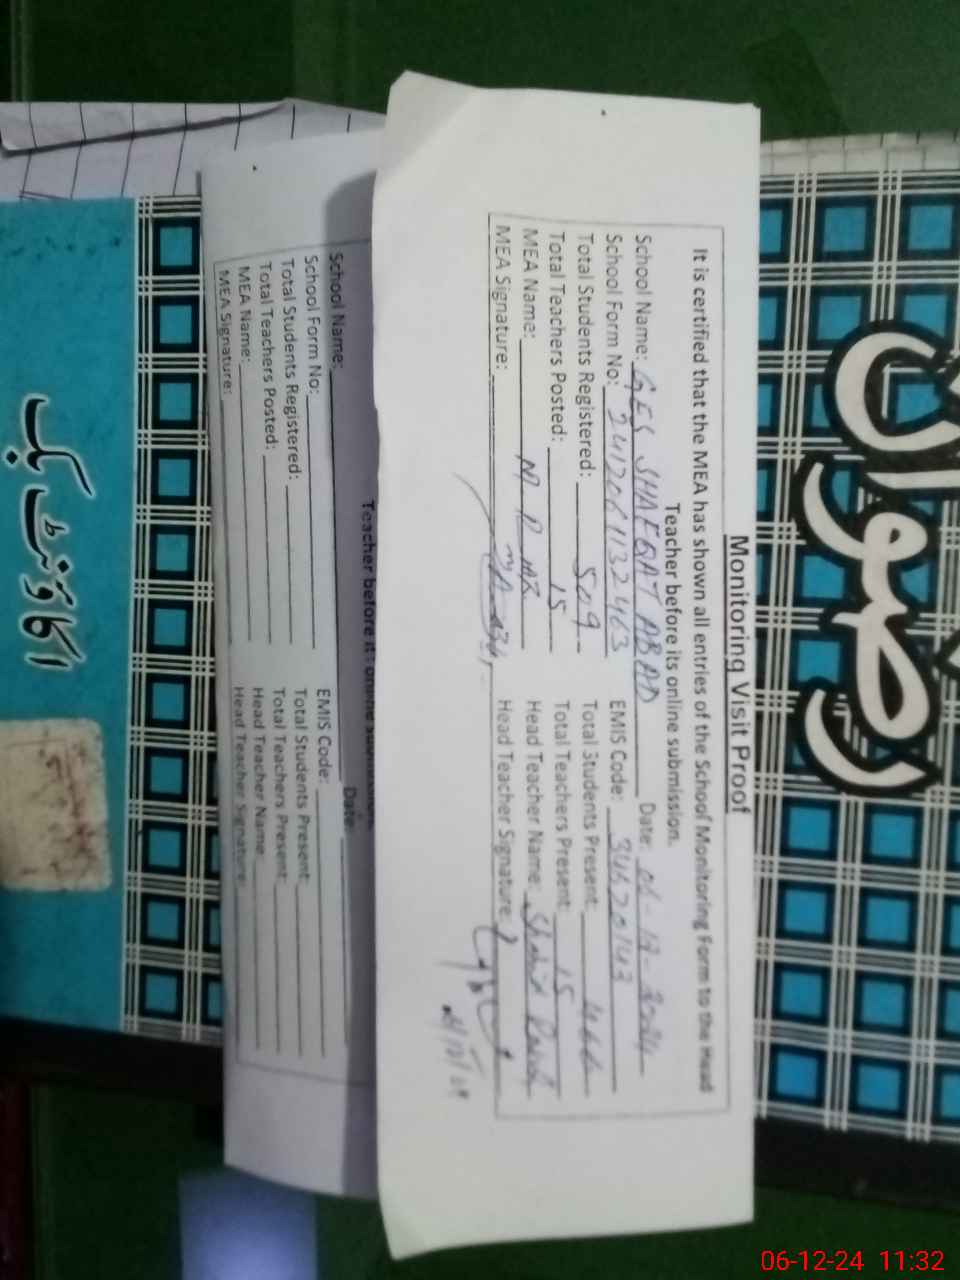 Monitoring Visit Proof
It is certified that the MEA has shown all entries of the School Monitoring Form to the Head
Teacher before its online submission.
School Name: GES SHAFQAT ABAD Date: 06-12-2024
School Form No: 2412061132463 EMIS Code: 34620143
Total Students Registered: 509 Total Students Present: 466
Total Teachers Posted: 15 Total Teachers Present: 15
MEA Name: Head Teacher Name: Shahid
MEA Signature: Head Teacher Signature
Teacher before it
School Name: Date:
School Form No: EMIS Code:
Total Students Registered: Total Students Present:
Total Teachers Posted: Total Teachers Present:
MEA Name: Head Teacher Name:
MEA Signature: Head Teacher Signature:
رضوان
اکاؤنٹ بک
06-12-24 11:32